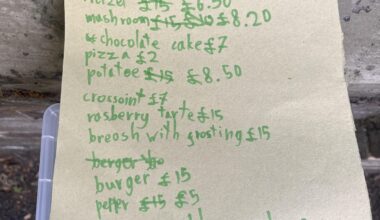 £15 £6.50
mashroom £15 £10 £8.20
chocolate cake £7
pizza £2
potatoe £15 £8.50
crossoint £7
rosberry tarte £15
breosh with grosting £15
berger
burger £15
peper £15 £5